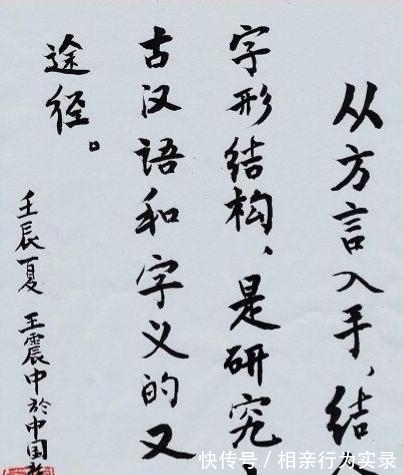 从方言入手，结
字形结构，是研究
古汉语和字义的又
途径。
壬辰夏 王震中於中国
快传号/相亲行为实录